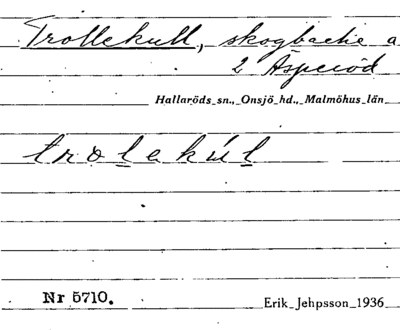 Trollekull, skogbacke a
2 Asperöd
Hallaröds sn., Onsjö hd., Malmöhus län
trolekúl
Nr 5710.
Erik Jehpsson 1936